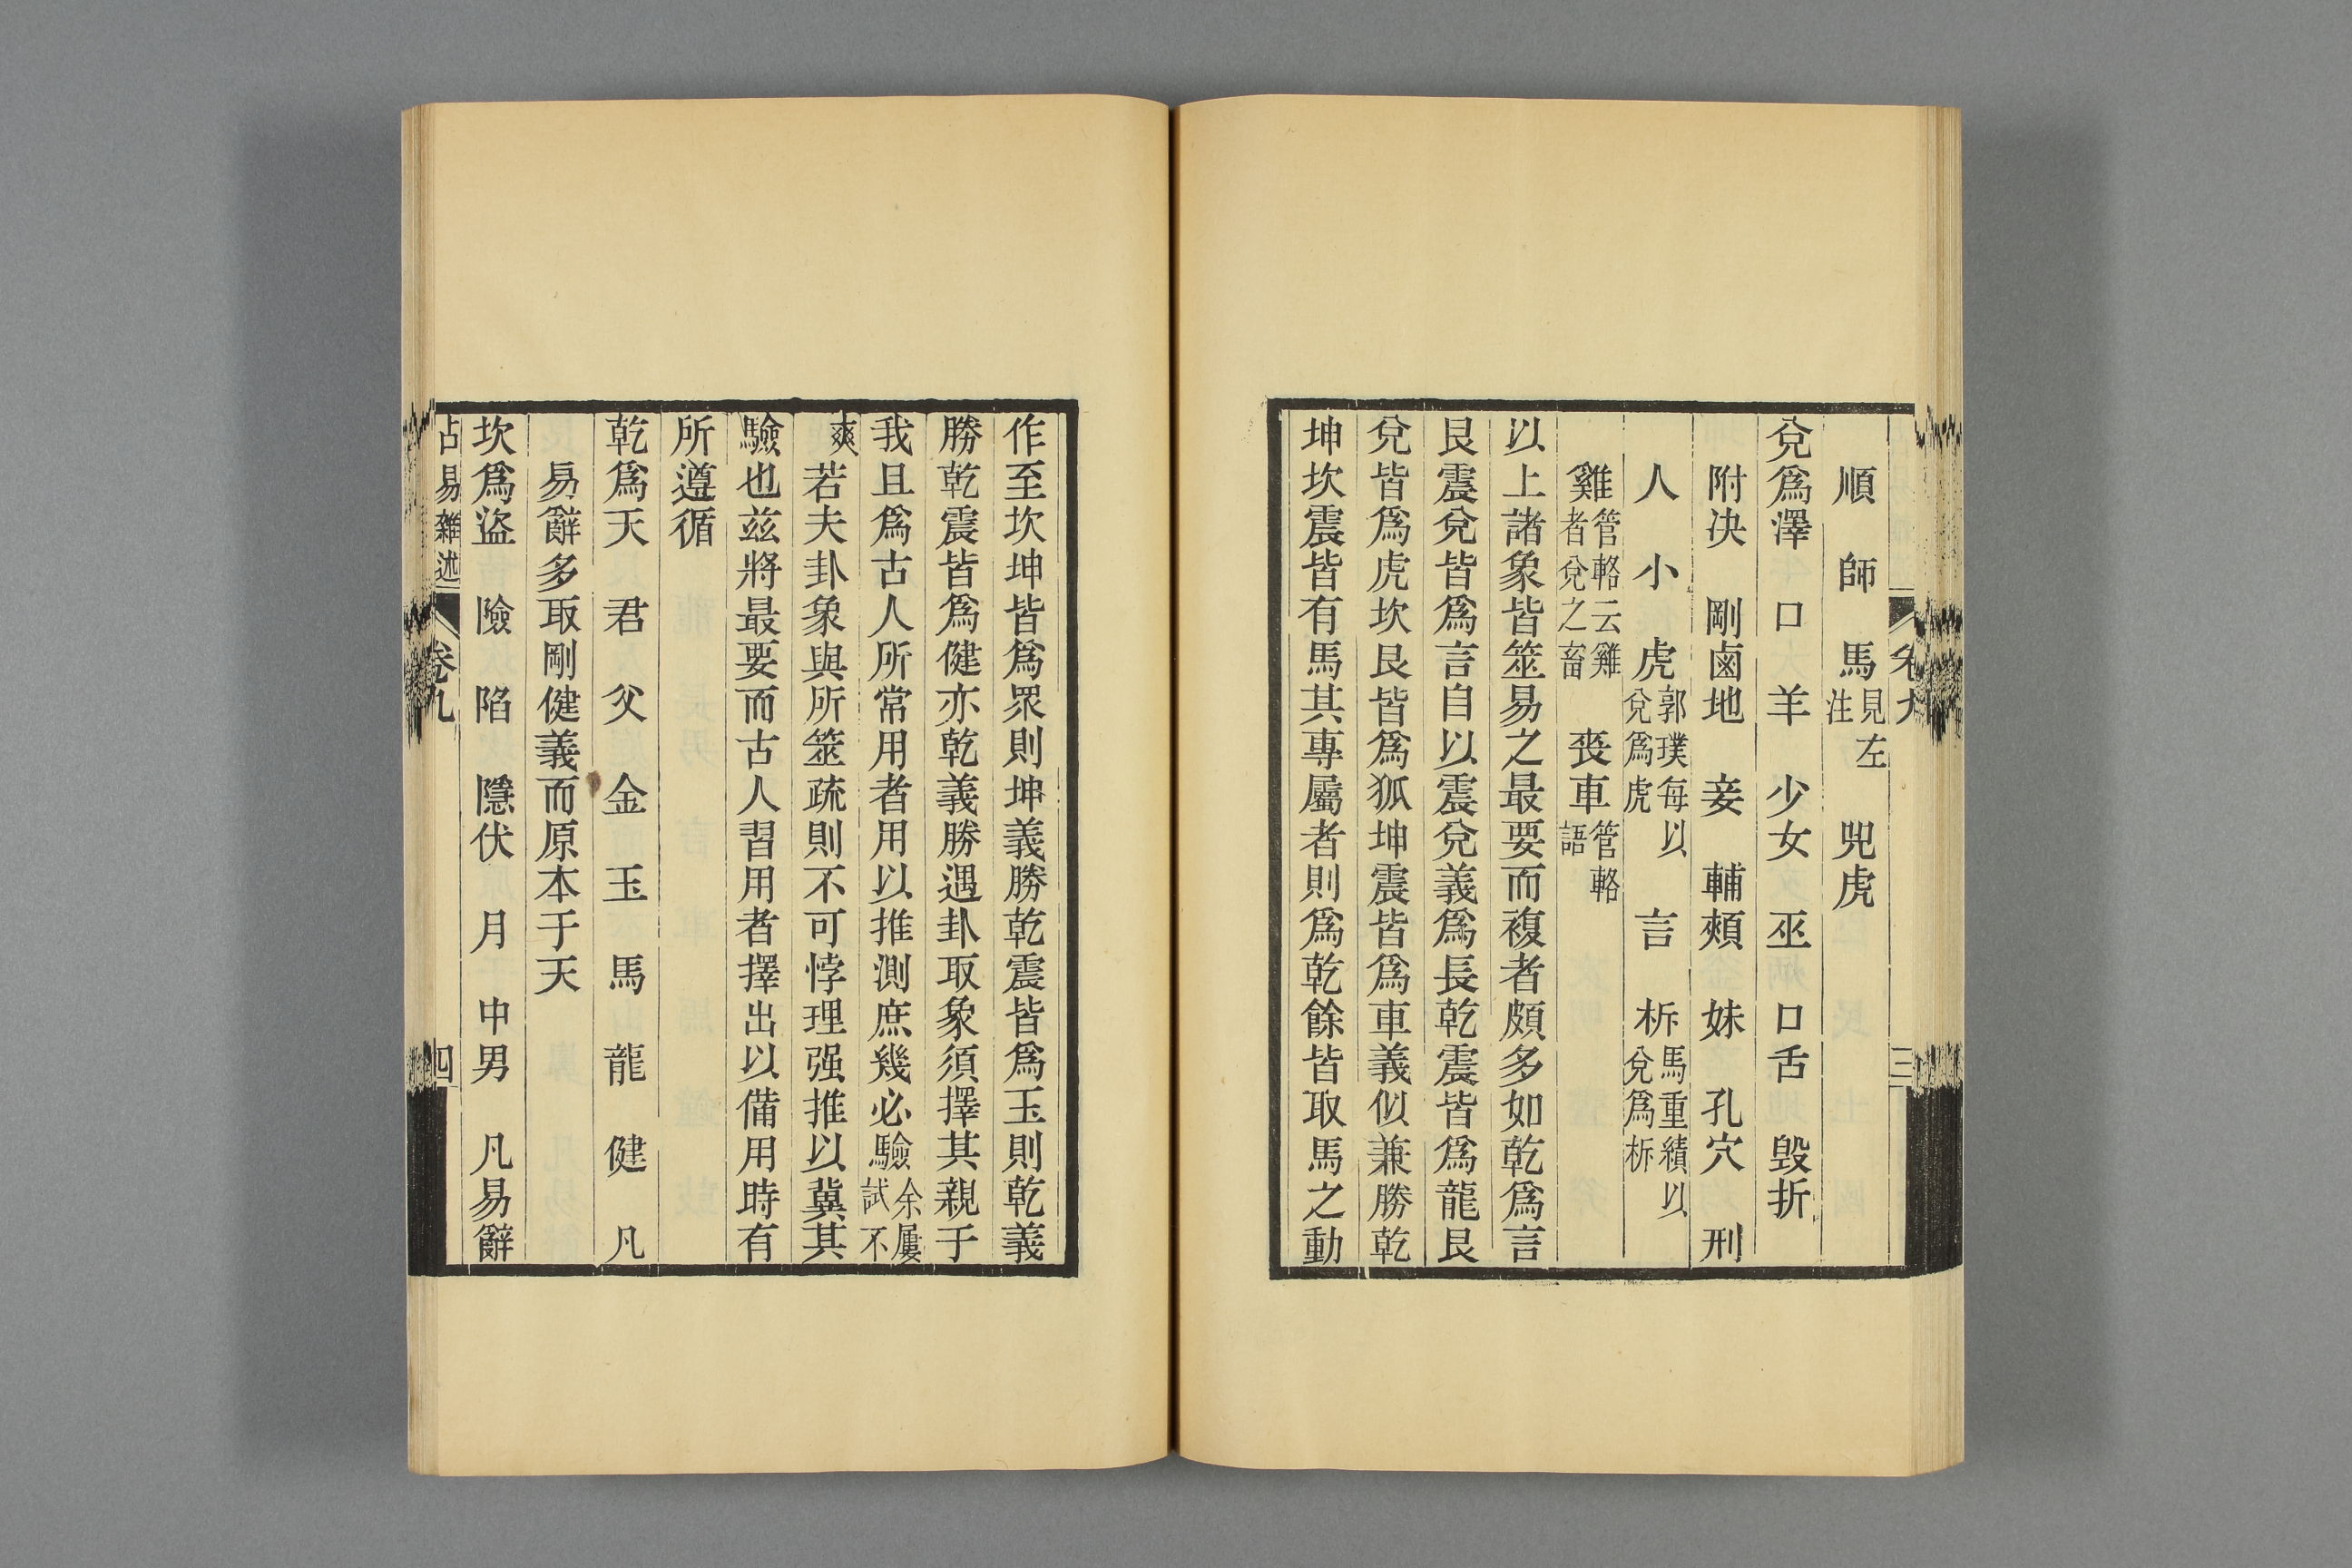 順　師　馬見左注　兕虎
兌爲澤　口　羊　少女　巫　口舌　毁折
附決　剛鹵地　妾　輔頰　妹　孔穴　刑
人　小　虎郭璞每以兌爲虎　言　柝馬重績以兌爲柝
雞管輅云雞者兌之畜　喪車管輅語
以上諸象皆筮易之最要而複者頗多如乾爲言
艮震兌皆爲言自以震兌義爲長乾震皆爲龍艮
兌皆爲虎坎艮皆爲狐坤震皆爲車義似兼勝乾
坤坎震皆有馬其專屬者則爲乾餘皆取馬之動
作至坎坤皆爲眾則坤義勝乾震皆爲玉則乾義
勝乾震皆爲健亦乾義勝遇卦取象須擇其親于
我且爲古人所常用者用以推測庶幾必驗余屢試不
爽若夫卦象與所筮疏則不可悖理强推以冀其
驗也兹將最要而古人習用者擇出以備用時有
所遵循
乾爲天　君　父　金　玉　馬　龍　健　凡
易辭多取剛健義而原本于天
坎爲盜　險　陷　隱伏　月　中男　凡易辭
占易雜述　卷九　四